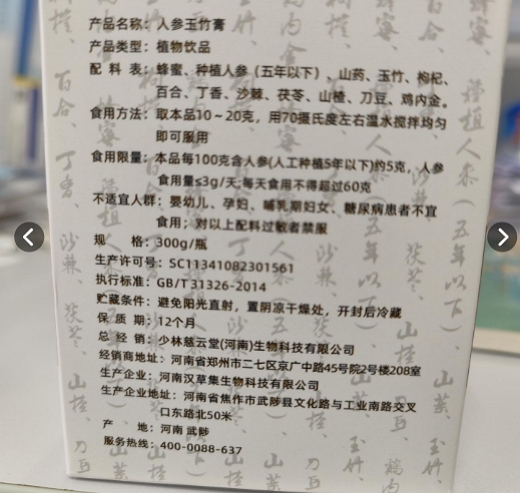 产品名称：人参玉竹膏
产品类型：植物饮品
配 料 表：蜂蜜、种植人参（五年以下）、山药、玉竹、枸杞、
百合、丁香、沙棘、茯苓、山楂、刀豆、鸡内金。
食用方法：取本品10~20克，用70摄氏度左右温水搅拌均匀
即可服用
食用限量：本品每100克含人参(人工种植5年以下)约5克，人参
食用量≤3g/天;每天食用不得超过60克
不适宜人群：婴幼儿、孕妇、哺乳期妇女、糖尿病患者不宜
食用；对以上配料过敏者禁服
规 格：300g/瓶
生产许可号：SC11341082301561
执行标准：GB/T31326-2014
贮藏条件：避免阳光直射，置阴凉干燥处，开封后冷藏
保 质 期：12个月
总 经 销：少林慈云堂(河南)生物科技有限公司
经销商地址：河南省郑州市二七区京广中路45号院2号楼208室
生产企业：河南汉草集生物科技有限公司
生产企业地址：河南省焦作市武陟县文化路与工业南路交叉
口东路北50米
产 地：河南 武陟
服务热线：400-0088-637